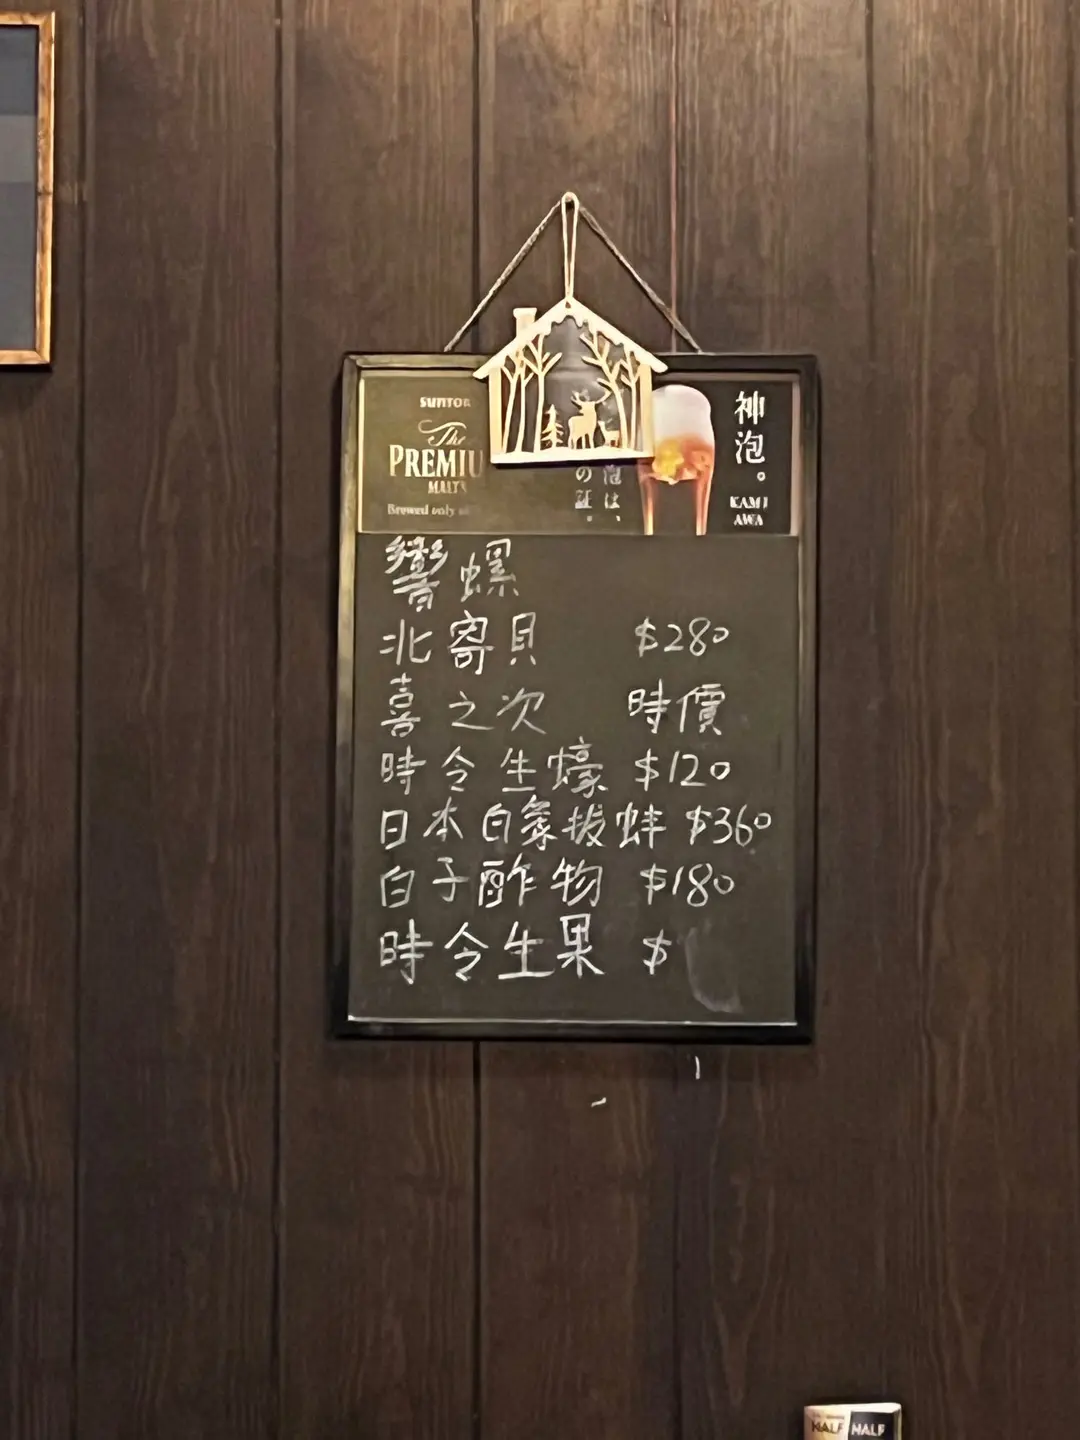 SUNTOR
The
PREMIU
MALT'S
Brewed only
泡は、
の証。
神泡。
KAMI
AWA
響螺
北寄貝 $280
喜之次 時價
時令生蠔 $120
日本白象拔蚌 $360
白子酢物 $180
時令生果 $
HALF HALF